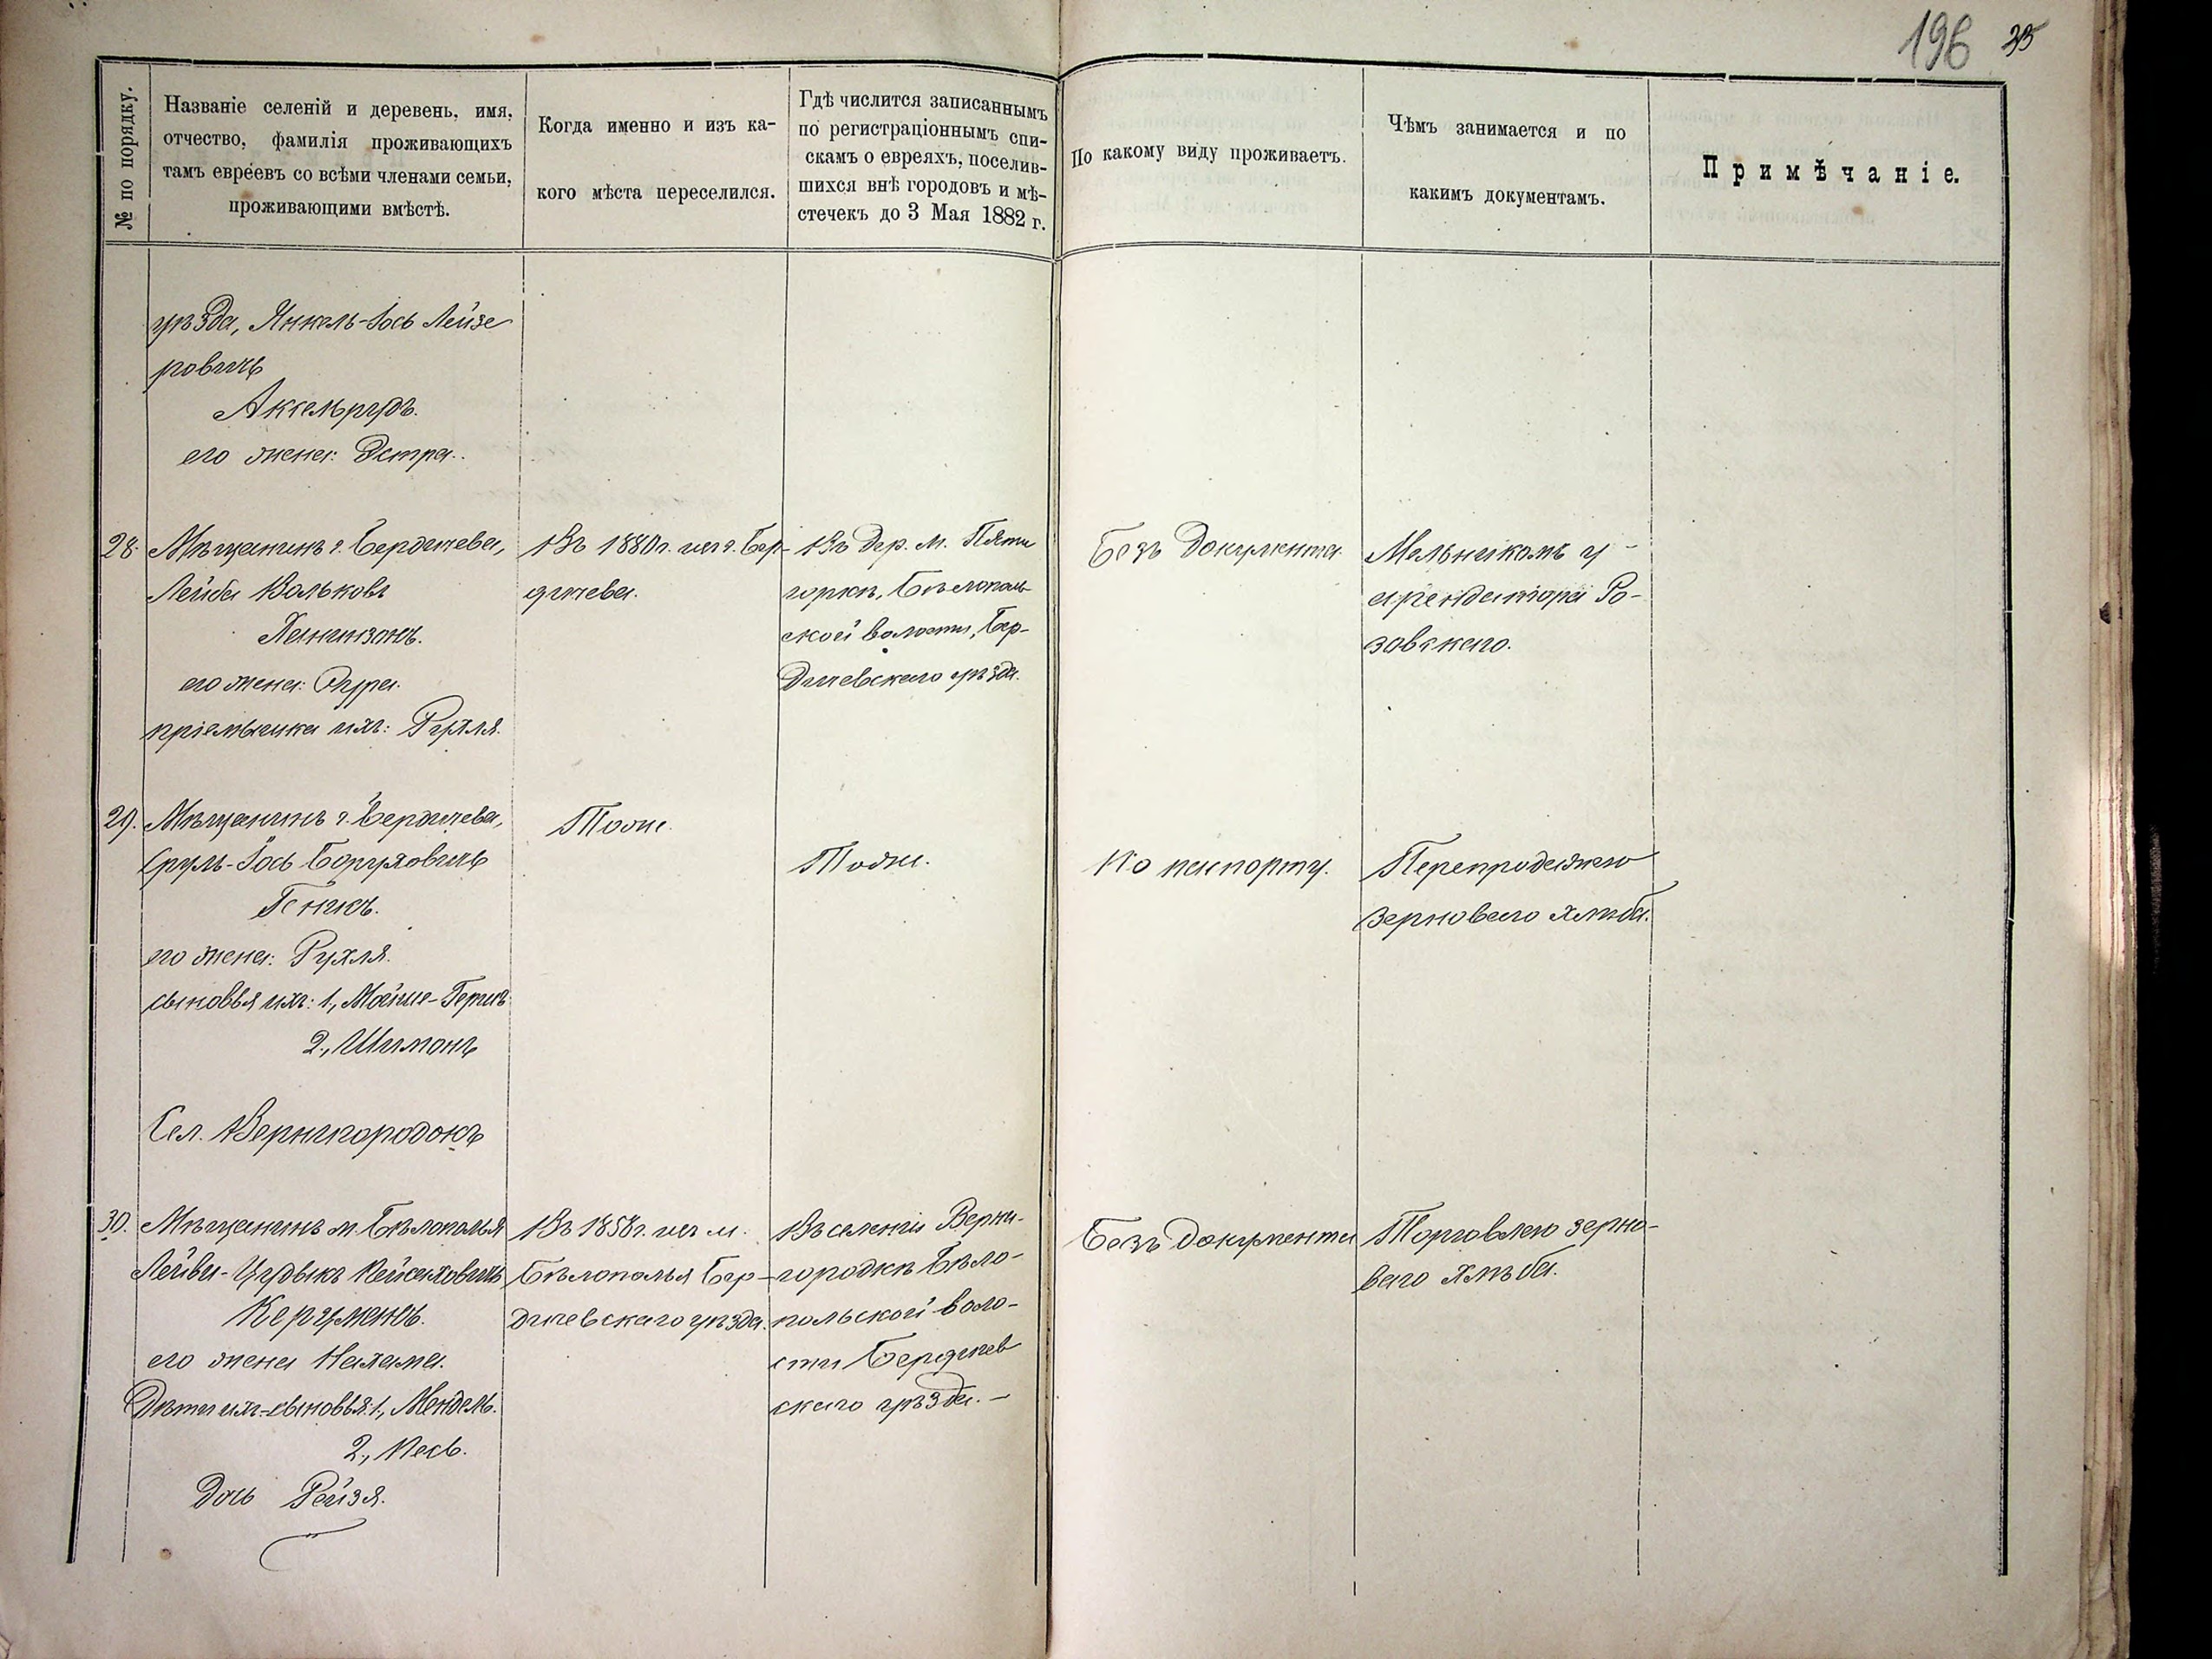 196 35
№ по порядку.
Названіе селеній и деревень, имя,
отчество, фамилія проживающихъ
тамъ евреевъ со всѣми членами семьи,
проживающими вмѣстѣ.
Когда именно и изъ ка-
кого мѣста переселился.
Гдѣ числится записаннымъ
по регистраціоннымъ спи-
скамъ о евреяхъ, поселив-
шихся внѣ городовъ и мѣ-
стечекъ до 3 Мая 1882 г.
По какому виду проживаетъ.
Чѣмъ занимается и по
какимъ документамъ.
Примѣчаніе.
уѣзда, Янкель-Іось Лейзе
ровичъ
Аксельрудъ.
его жена: Эстра.
28. Мѣщанинъ г. Бердичева,
Лейба Вольковъ
его жена: Сура.
пріемышка ихъ: Рухля.
Въ 1880 г. изъ г. Бер-
дичева.
Въ дер. М. Пяти
горкѣ, Бѣлополь
ской волости, Бер-
дичевскаго уѣзда.
Безъ документа
Мельникомъ у
арендатора Ро-
зовскаго.
29. Мѣщанинъ г. Бердичева,
Сруль-Іось Боруховичъ
Геникъ.
его жена: Рухля.
сыновья ихъ: 1, Мойше-Гершъ
2, Шимонъ
Тоже
Тоже.
По паспорту.
Перепродажею
зерноваго хлѣба.
Сел. Вернигородокъ
30. Мѣщанинъ м. Бѣлополья
Лейви-Цудыкъ Пейсаховичъ
Керцменъ.
его жена Нахама.
Дѣти ихъ-сыновья: 1, Мендель.
2, Песь.
Дочь Рейзя.
Въ 1858 г. изъ м.
Бѣлополья Бер-
дичевскаго уѣзда.
Въ селеніи Верни-
городкѣ Бѣло-
польской воло-
сти Бердичев
скаго уѣзда. —
Безъ документа
Торговлею зерно-
ваго хлѣба.